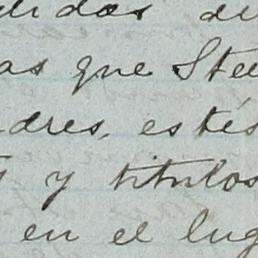 didos de
as que Stee
dres, estés
s y titulos
en el lug